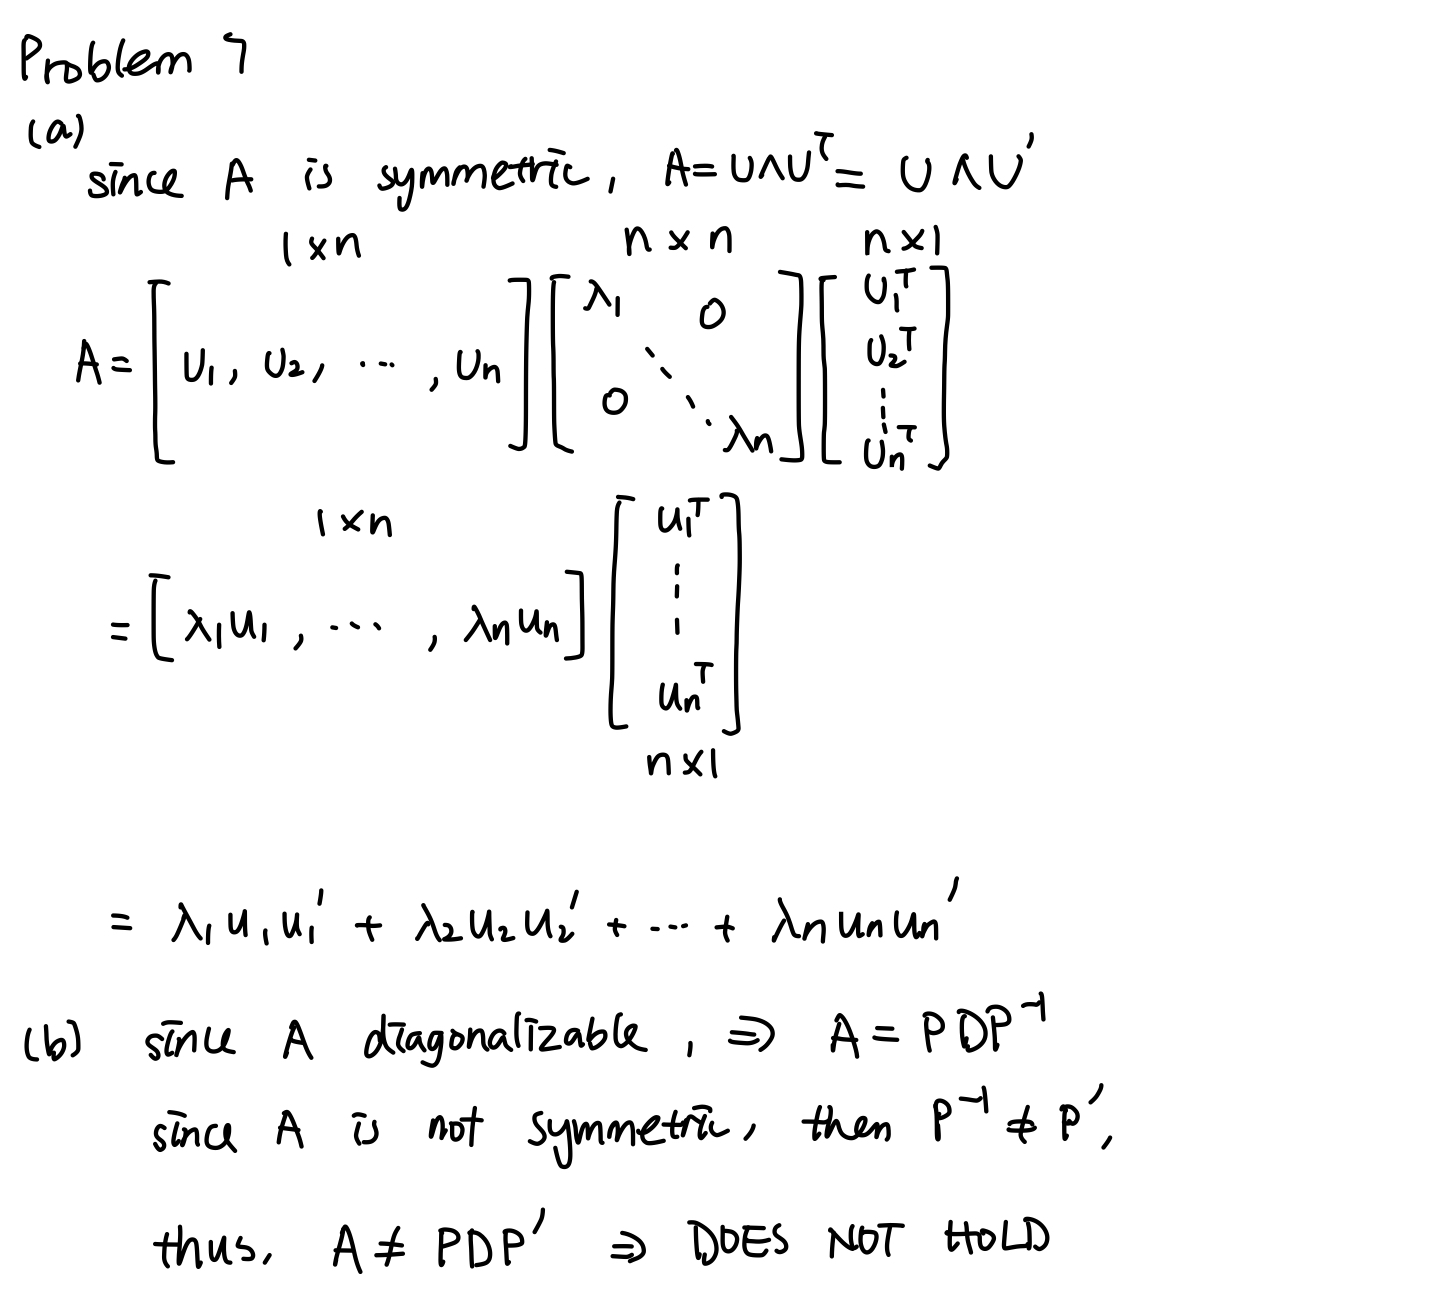 Problem 7
(a)
since A is symmetric, A = UΛUᵀ = UΛU'
1×n n×n n×1
A = [U₁, U₂, ⋯, Uₙ] [λ₁ 0 ⋱ 0 λₙ] [U₁ᵀ U₂ᵀ ⋮ Uₙᵀ]
1×n
= [λ₁u₁, ⋯, λₙuₙ] [u₁ᵀ ⋮ uₙᵀ]
n×1
= λ₁u₁u₁' + λ₂u₂u₂' + ⋯ + λₙuₙuₙ'
(b) since A diagonalizable, ⇒ A = PDP⁻¹
since A is not symmetric, then P⁻¹ ≠ P',
thus, A ≠ PDP' ⇒ DOES NOT HOLD